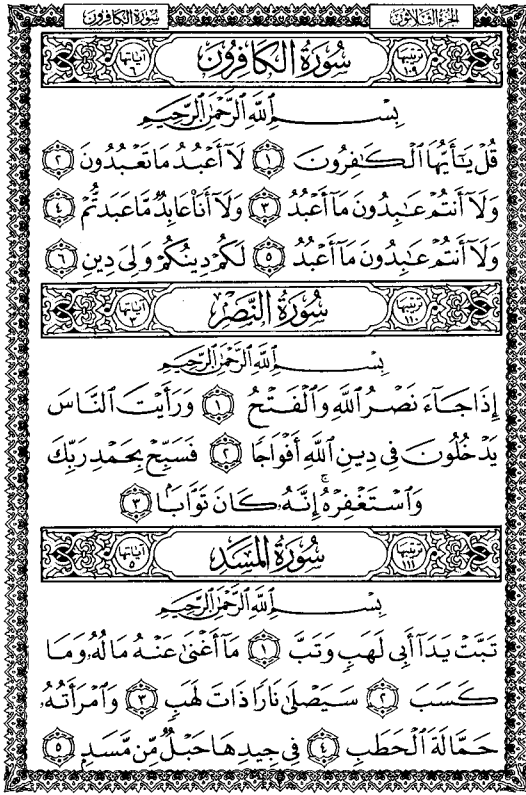 الجزء الثلاثون
سورة الكافرون
ترتيبها ١٠٩ سُورَةُ الكَافِرُونَ آياتها ٦
بِسْمِ اللَّهِ الرَّحْمَٰنِ الرَّحِيمِ
قُلْ يَٰٓأَيُّهَا ٱلْكَٰفِرُونَ ١ لَآ أَعْبُدُ مَا تَعْبُدُونَ ٢
وَلَآ أَنتُمْ عَٰبِدُونَ مَآ أَعْبُدُ ٣ وَلَآ أَنَا۠ عَابِدٌ مَّا عَبَدتُّمْ ٤
وَلَآ أَنتُمْ عَٰبِدُونَ مَآ أَعْبُدُ ٥ لَكُمْ دِينُكُمْ وَلِىَ دِينِ ٦
ترتيبها ١١٠ سُورَةُ النَّصْرِ آياتها ٣
بِسْمِ اللَّهِ الرَّحْمَٰنِ الرَّحِيمِ
إِذَا جَآءَ نَصْرُ ٱللَّهِ وَٱلْفَتْحُ ١ وَرَأَيْتَ ٱلنَّاسَ
يَدْخُلُونَ فِى دِينِ ٱللَّهِ أَفْوَاجًا ٢ فَسَبِّحْ بِحَمْدِ رَبِّكَ
وَٱسْتَغْفِرْهُ ۚ إِنَّهُۥ كَانَ تَوَّابًۢا ٣
ترتيبها ١١١ سُورَةُ المَسَدِ آياتها ٥
بِسْمِ اللَّهِ الرَّحْمَٰنِ الرَّحِيمِ
تَبَّتْ يَدَآ أَبِى لَهَبٍ وَتَبَّ ١ مَآ أَغْنَىٰ عَنْهُ مَالُهُۥ وَمَا
كَسَبَ ٢ سَيَصْلَىٰ نَارًا ذَاتَ لَهَبٍ ٣ وَٱمْرَأَتُهُۥ
حَمَّالَةَ ٱلْحَطَبِ ٤ فِى جِيدِهَا حَبْلٌ مِّن مَّسَدٍۭ ٥